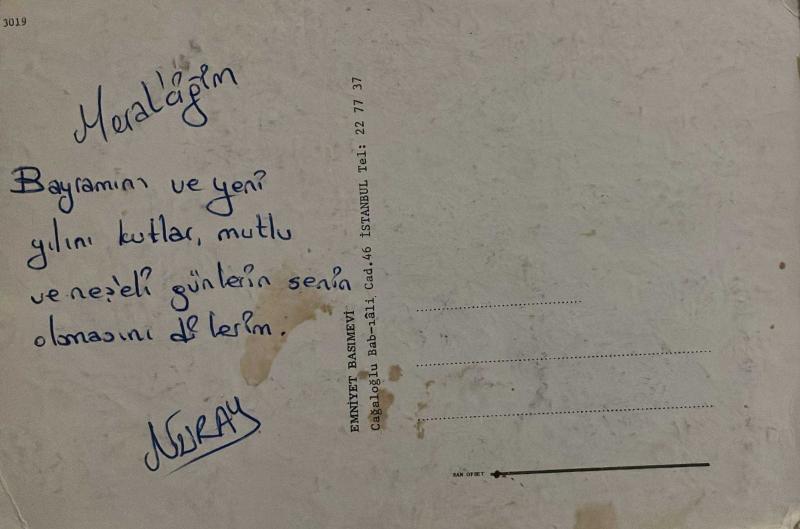 3019
Meral'ciğim
Bayramını ve yeni
yılını kutlar, mutlu
ve neş'eli günlerin senin
olmasını dilerim.
NURAY
EMNİYET BASIMEVİ
Cağaloğlu Bab-ıâli Cad.46 İSTANBUL Tel: 22 77 37
SAN OFSET